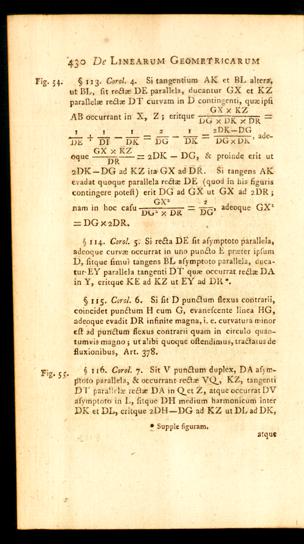 430 De LINEARUM GEOMETRICARUM
Fig. 54. § 113. Corol. 4. Si tangentium AK et BL alterа,
ut BL, sit rectæ DE parallela, ducantur GX et KZ
parallelæ rectæ DT curvam in D contingenti, quæ ipsi
AB occurrant in X, Z; eritque GX × KZ / DG × DK × DR =
1/DE + 1/DT − 1/DK = 2/DG − 1/DK = 2DK−DG / DG×DK, ade-
oque GX × KZ / DR = 2DK − DG, & proinde erit ut
2DK−DG ad KZ ita GX ad DR. Si tangens AK
evadat quoque parallela rectæ DE (quod in his figuris
contingere potest) erit DG ad GX ut GX ad 2DR;
nam in hoc casu GX² / DG² × DR = 2/DG, adeoque GX²
= DG×2DR.
§ 114. Corol. 5. Si recta DE sit asymptoto parallela,
adeoque curvæ occurrat in uno puncto E præter ipsum
D, sitque simul tangens BL asymptoto parallela, duca-
tur EY parallela tangenti DT quæ occurrat rectæ DA
in Y, eritque KE ad KZ ut EY ad DR*.
§ 115. Corol. 6. Si sit D punctum flexus contrarii,
coincidet punctum H cum G, evanescente linea HG,
adeoque evadit DR infinite magna, i. e. curvatura minor
est ad punctum flexus contrarii quam in circulo quan-
tumvis magno; ut alibi quoque ostendimus, tractatus de
fluxionibus, Art. 378.
Fig. 55. § 116. Corol. 7. Sit V punctum duplex, DA asym-
ptoto parallela, & occurrant rectæ VQ, KZ, tangenti
DT parallelæ rectæ DA in Q et Z, atque occurrat DV
asymptoto in L, sitque DH medium harmonicum inter
DK et DL, eritque 2DH−DG ad KZ ut DL ad DK,
* Supple figuram.
atque